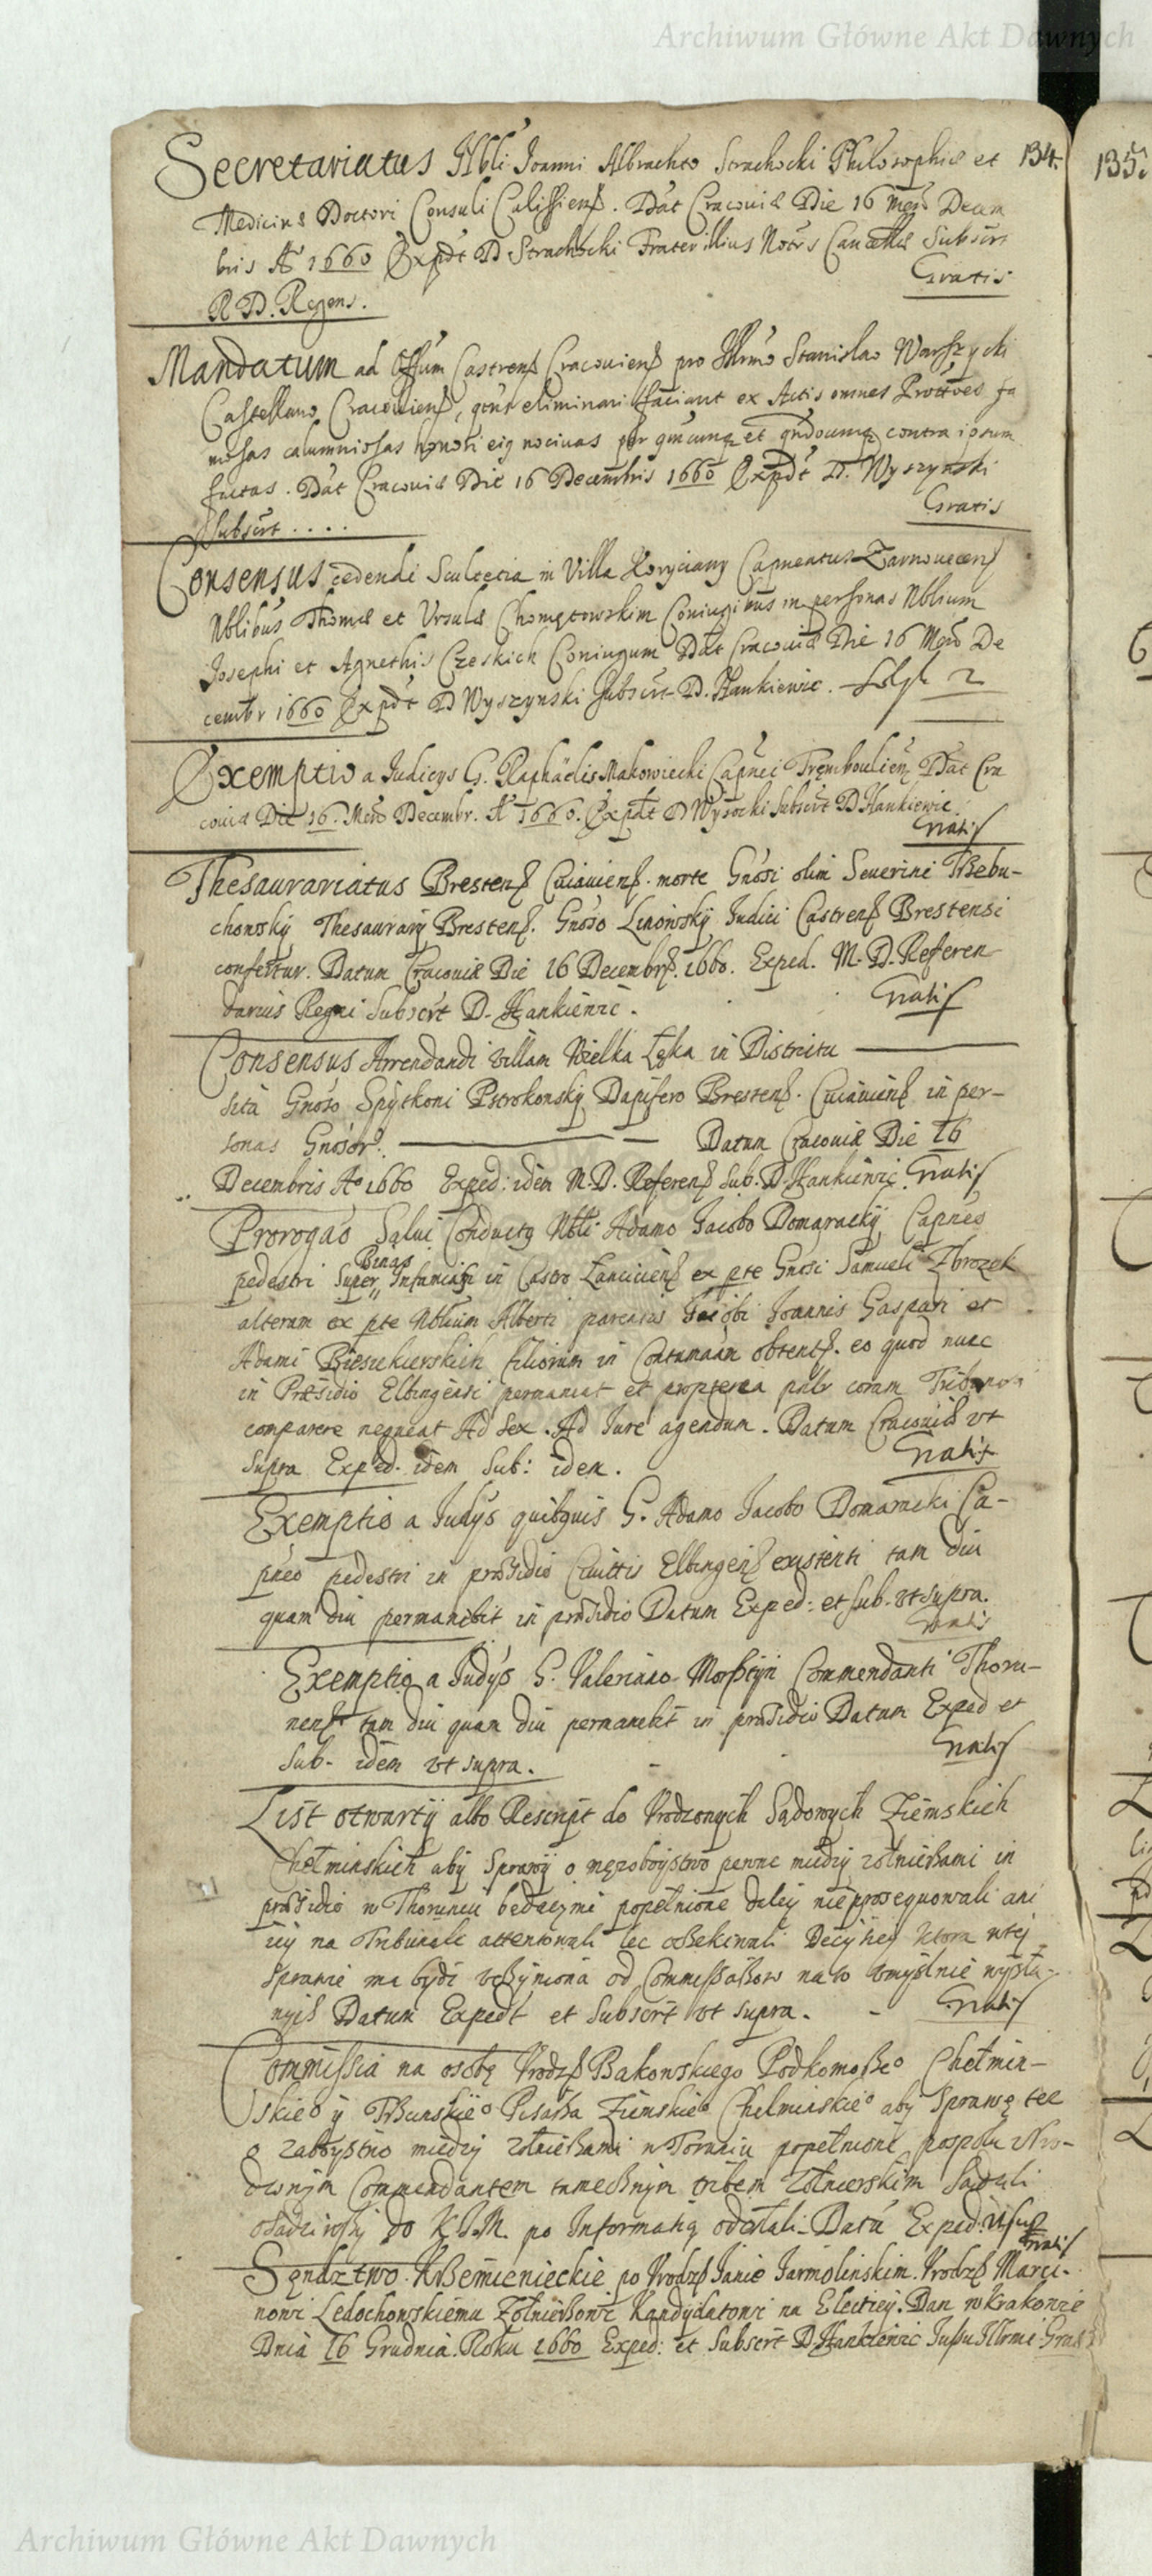 Archiwum Główne Akt Dawnych
Secretariatus Nbli Joanni Albrachto Strachocki Philosophiæ et 134.
Medicinæ Doctori Consuli Calissiens. Dat Cracoviæ Die 16 Mens Decem
bris A° 1660 Expdt D Strachocki Frater illius Notrs Cancellæ Subscrt
R D. Regens. Gratis
Mandatum ad Offum Castrens Cracoviens pro Illrmo Stanislao Warszycki
Castellano Cracoviens, qtnt eliminari faciant ex Actis omnes Prottnes fa
mosas calumniosas honori eig nocivas per qmcumq et qndocumq contra ipsum
factas. Dat Cracoviæ Die 16 Decembris 1660 Expdt D. Wyszynski
Subscrt .... Gratis
Consensus cedendi Scultetia in Villa Koryciany Capneatus Zarnovecens
Nblibus Thomæ et Ursulæ Chomętowskim Coniugibus in personas Nblium
Josephi et Agnethis Czeskich Coniugum Dat Cracoviæ Die 16 Mens De
cembr 1660 Expdt D Wyszynski Subscrt D. Hankiewic. 2
Exemptio a Iudicys G. Raphaëlis Makowiecki Capnei Trembouliens Dat Cra
coviæ Die 16. Mens Decembr. A° 1660. Expdt D Wysocki Subscrt D Hankiewic
Gratis
Thesaurariatus Brestens Cuiaviens. morte Gnosi olim Severini Trzebu-
chowsky Thesaurarij Brestens. Gnoso Linowsky Iudici Castrens Brestensi
confertur. Datum Cracoviæ Die 16 Decembrs. 1660. Exped. M. D. Referen
darius Regni Subscrt D. Hankiewic. Gratis
Consensus Arrendandi villam Wielka Łąka in Districtu
sita Gnoso Spytkoni Pstrokonsky Dapifero Brestens. Cuiaviens in per-
sonas Gnosor. Datum Cracoviæ Die 16
Decembris A° 1660 Exped: idem M. D. Referens Sub. D. Hankiewic. Gratis
Prorogao Salvi Conductg Nbli Adamo Jacobo Domaracky Capneo
Binas
pedestri Super Infamias in Castro Lanciciens ex pte Gnosi Samueli Zbrozek
alteram ex pte Nblium Alberti parentis Jacobi Joannis Gaspari et
Adami Biesiekierskich filiorum in Contumaam obtents. eo quod nunc
in Præsidio Elbingensi permaneat et propterea pnlr coram
comparere nequeat Ad Sex. Ad Iure agendum. Datum Cracoviæ vt
supra Exped. idem Sub: idem. Gratis
Exemptio a Iudys quibquis G. Adamo Jacobo Domaracki Ca-
pneo pedestri in præsidio Civittis Elbingens existenti tam diu
quam diu permanebit in præsidio Datum Exped: et sub. vt supra.
Gratis
Exemptio a Iudys G. Valeriano Morstyn Commendanti Thoru-
nens. tam diu quam diu permanebit in præsidio Datum Exped et
sub. idem vt supra. Gratis
List otwarty albo Rescript do Vrodzonych Sądowych Ziemskich
Chełminskich aby Sprawy o męzoboystwo pewne miedzy zołnierzami in
præsidio w Thoruniu będącymi popełnione daley nie prosequowali ani
iey na Tribunale attentowali lec oczekiwali Decyziey ktora w tey
Sprawie ma bydz vczyniona od Commissarzow na to vmyslnie wysła-
nych Datum Expedt et Subscrt vt supra. - Gratis
Commissia na osobę Vrodzs Bakowskiego Podkomorzeo Chełmin-
skieo y Trzunskieo Pisarza Ziemskieo Chelminskieo aby Sprawę tee
o zaboystwo miedzy zołnierzami w Toruniu popełnione pospołu vro-
dzonym Commendantem tamecznym tribem zołnierskim Sądzili
osądziwszy do K. I. M. po Informatią odesłali Datu Exped. Vt sup
Gratis
Sęndztwo Krzemienieckie po Vrodzs Janie Jarmolinskim. Vrodzs Marci-
nowi Ledochowskiemu Zołnierzowi Kandydatowi na Electiey. Dan w Krakowie
Dnia 16 Grudnia Roku 1660 Exped: et Subscrt D. Hankiewic Iussu Illrmi Gratis
135.
Archiwum Główne Akt Dawnych